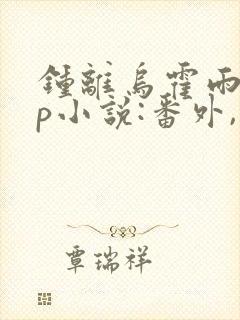 鍾離烏霍雨
p小説:番外,
覃瑞祥